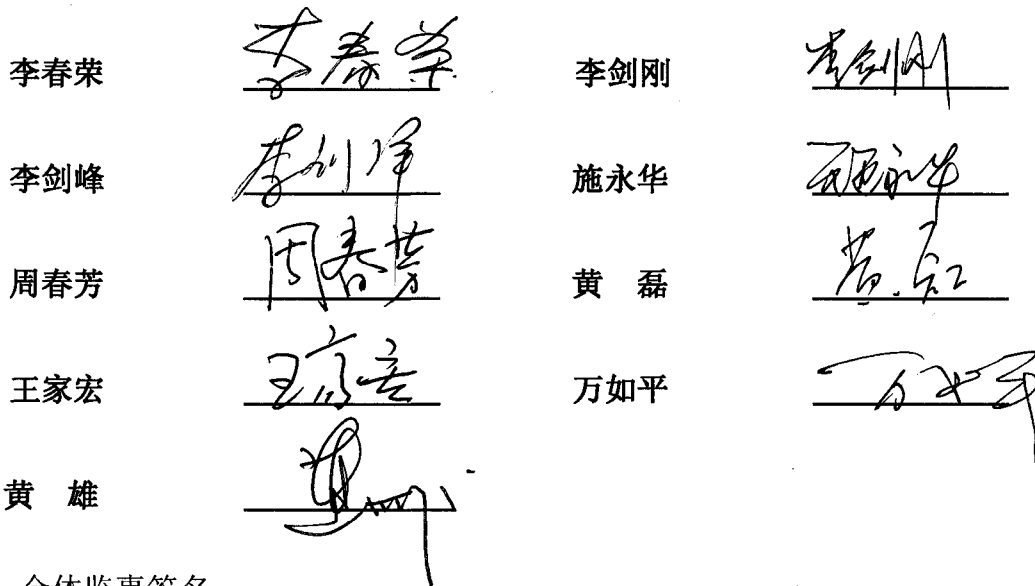 李春荣 李春荣 李剑刚 李剑刚
李剑峰 李剑峰 施永华 施永华
周春芳 周春芳 黄 磊 黄磊
王家宏 王家宏 万如平 万如平
黄 雄 黄雄
全体监事签名